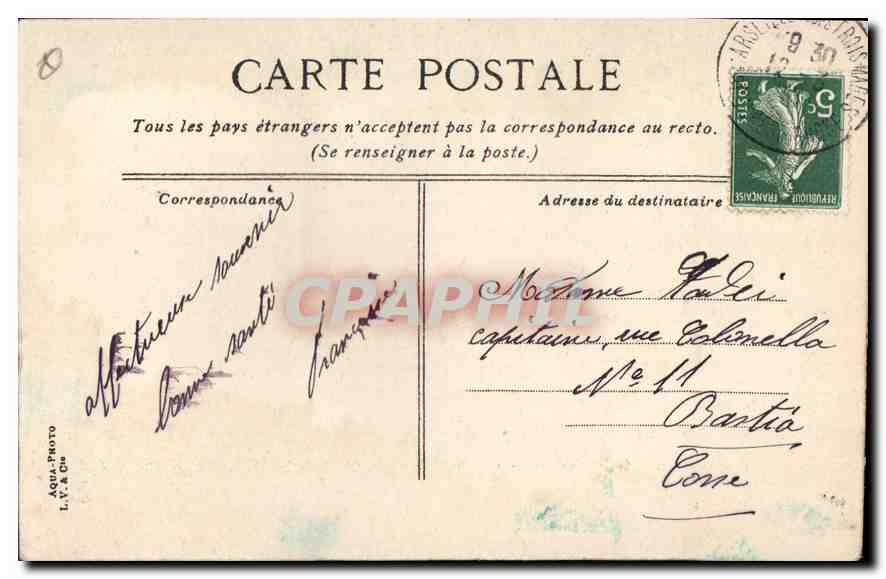 CARTE POSTALE
Tous les pays étrangers n'acceptent pas la correspondance au recto.
(Se renseigner à la poste.)
Correspondance
affectueux souvenir
bonne santé
françoise
Adresse du destinataire
Madame
capitaine, rue Colonella
No 11
Bastia
Corse
AQUA-PHOTO
L. V. & Cie
5c
POSTES
REPUBLIQUE FRANÇAISE
TROIS MAGES
9 30
CPAPHIL